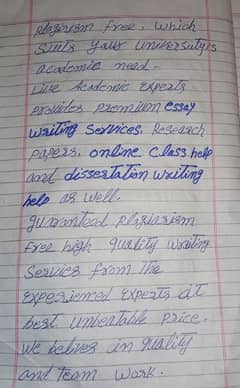 plagiarism free, which
suits your university's
academic need.
Live Academic Experts
provides premium essay
writing services, Research
papers, online class help
and dissertation writing
help as well.
guaranteed plagiarism
free high quality writing
Services from the
experienced experts at
best unbeatable price.
We believe in quality
and team work.